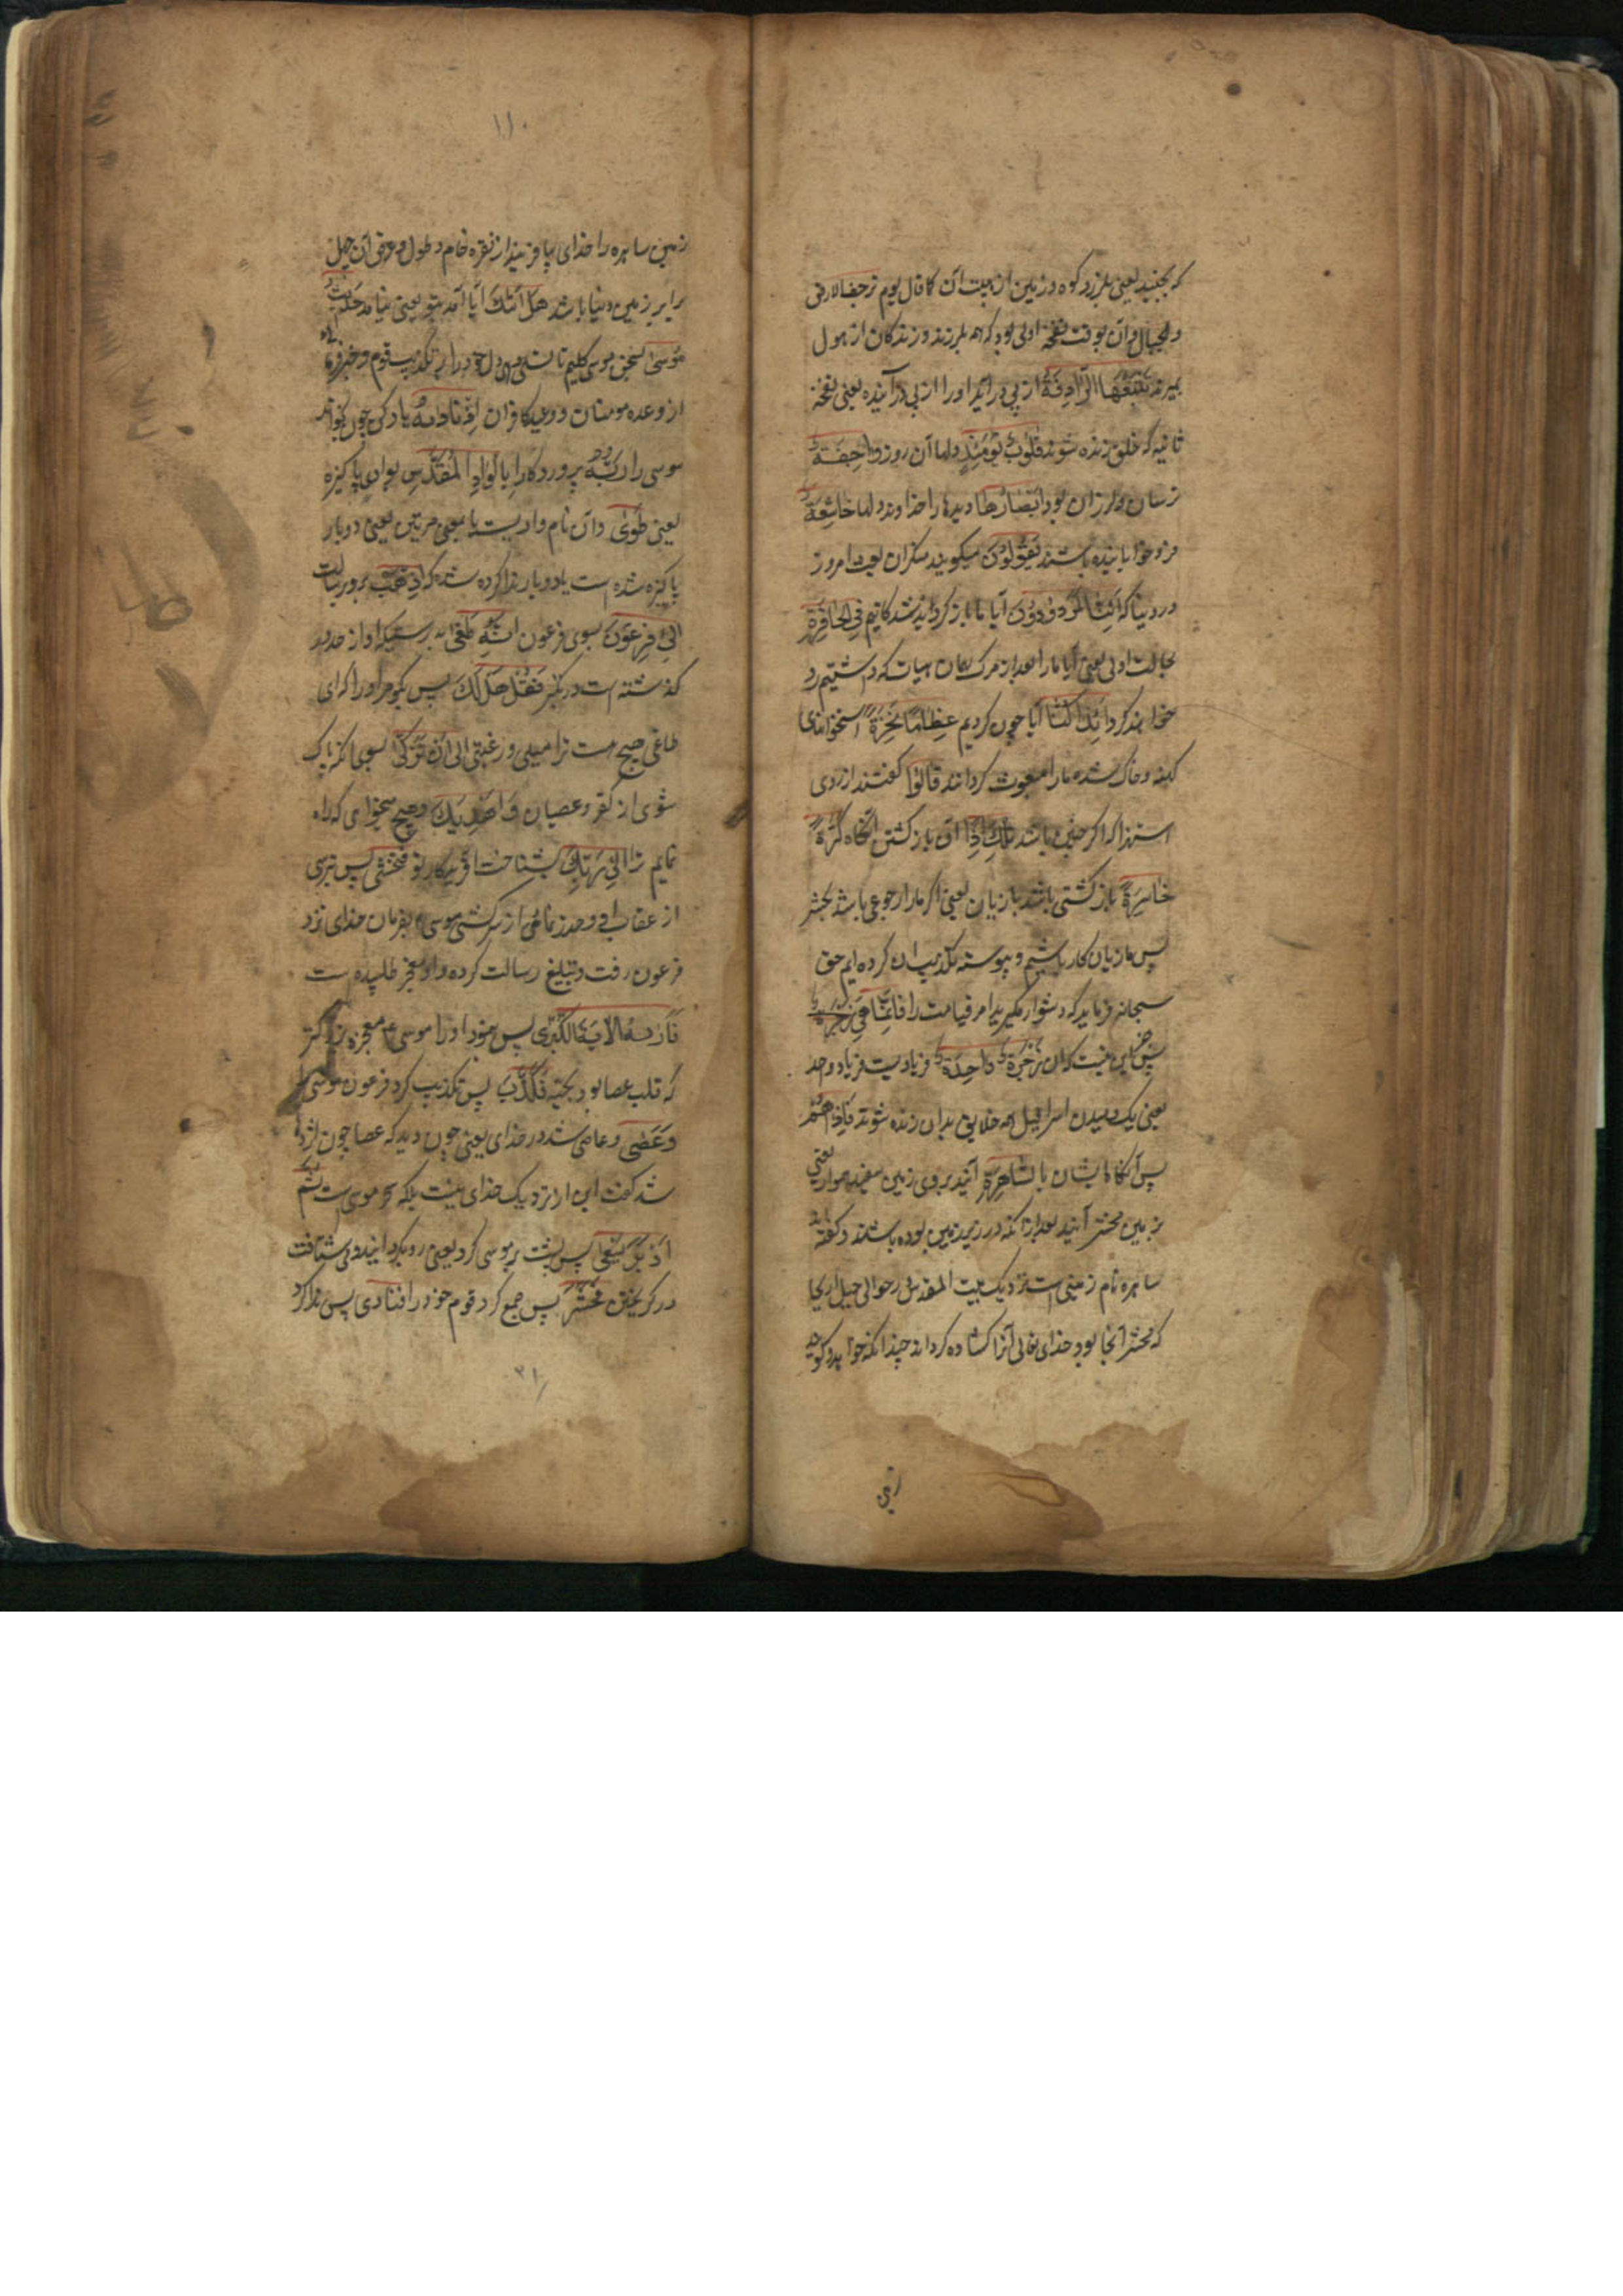 که بجنبد یعنی بلرزد کوه و زمین از هیبت آن کما قال یوم ترجف الارض
والجبال و آن بوقت نفخه اولی بود که همه بلرزند و زندگان از هول
بمیرند تَتْبَعُهَا الرَّادِفَةُ از پی در آید او را از پی در آینده یعنی نفخه
ثانیه که خلق زنده شوند قُلُوبٌ يَوْمَئِذٍ دلها آن روز وَاجِفَةٌ
ترسان و لرزان بود اَبْصَارُهَا دیدها را خداوند دلها خَاشِعَةٌ
فرو خوابانیده باشند يَقُولُونَ میکویند منکران بعث امروز
در دنیا که اَئِنَّا لَمَرْدُودُونَ آیا ما باز کردانیده شدکانیم فِي الْحَافِرَةِ
بحالت اولی یعنی آیا ما را بعد از مرک بهمان حیات که داشتیم رد
خواهند کرد اَئِذَا كُنَّا آیا چون کردیم عِظَامًا نَخِرَةً استخوانهای
کهنه و خاک شده ما را مبعوث کردانند قَالُوا کفتند از روی
استهزا که اکر چنین باشد تِلْكَ اِذًا آن باز کشتن آنکاه كَرَّةٌ
خَاسِرَةٌ باز کشتی باشد با زیان یعنی اکر ما را رجوعی باشد بحشر
پس ما زیان کار باشیم و پیوسته تکذیب آن کرده ایم حق
سبحانه فرماید که دشوار مکیرید امر قیامت را فَاِنَّمَا هِيَ زَجْرَةٌ
پس جز این نیست که آن زَجْرَةٌ وَاحِدَةٌ فریادیست فریاد واحد
یعنی یک دمیدن اسرافیل همه خلایق بدان زنده شوند فَاِذَا هُمْ
پس آنکاه ایشان بِالسَّاهِرَةِ آیند بروی زمین سفید هموار یعنی
بزمین محشر آیند بعد از آنکه در زیر زمین بوده باشند و کفته اند
ساهره نام زمینی است نزدیک بیت المقدس در حوالی جبل اریحا
که محشر آنجا بود و خدای تعالی آنرا کشاده کرداند چندانکه خواهد و کویند
زمین
۱۱۰
زمین ساهره را خدای بیافریند از نقره خام و طول و عرض آن چهل
برابر زمین دنیا باشد هَلْ اَتٰكَ آیا آمد بتو یعنی بیامد حَدِيثُ
مُوسٰى سخن موسی کلیم تا تسلی دهی دل خود را بر تکذیب قوم و خبر
از وعده مومنان و وعید کافران اِذْ نَادٰيهُ یاد کن چون بخواند
موسی را رَبُّهُ پروردکار او بِالْوَادِ الْمُقَدَّسِ بوادی پاکیزه
یعنی طُوًى و آن نام وادیست یا بمعنی مرتین یعنی دو بار
پاکیزه شده است یا دو بار ندا کرده شد که اِذْهَبْ برو برسالت
اِلٰى فِرْعَوْنَ بسوی فرعون اِنَّهُ طَغٰى بدرستیکه او از حد در
کذشته است در تکبر فَقُلْ هَلْ لَكَ پس بکو مر او را که ای
طاغی هیچ هست ترا میلی و رغبتی اِلٰى اَنْ تَزَكّٰى بسوی آنکه پاک
شوی از کفر و عصیان وَاَهْدِيَكَ و هیچ میخوای که راه
نمایم ترا اِلٰى رَبِّكَ بشناخت آفریدکار تو فَتَخْشٰى پس بترسی
از عقاب او و حذر نمائی از سرکشی موسی بفرمان خدای نزد
فرعون رفت و تبلیغ رسالت کرده و او معجزه طلبیده است
فَاَرٰيهُ الْاٰيَةَ الْكُبْرٰى پس نمود او را موسی ع معجزه بزرکتر
که قلب عصا بود بحیه فَكَذَّبَ پس تکذیب کرد فرعون موسی
وَعَصٰى و عاصی شد در خدای یعنی چون دید که عصا چون اژدها
شد کفت این از نزدیک خدای نیست بلکه سحر موسی است ثُمَّ
اَدْبَرَ يَسْعٰى پس پشت بر موسی کرد یعنی رو بکردانید و می شتافت
در کریختن فَحَشَرَ پس جمع کرد قوم خود را فَنَادٰى پس ندا کرد